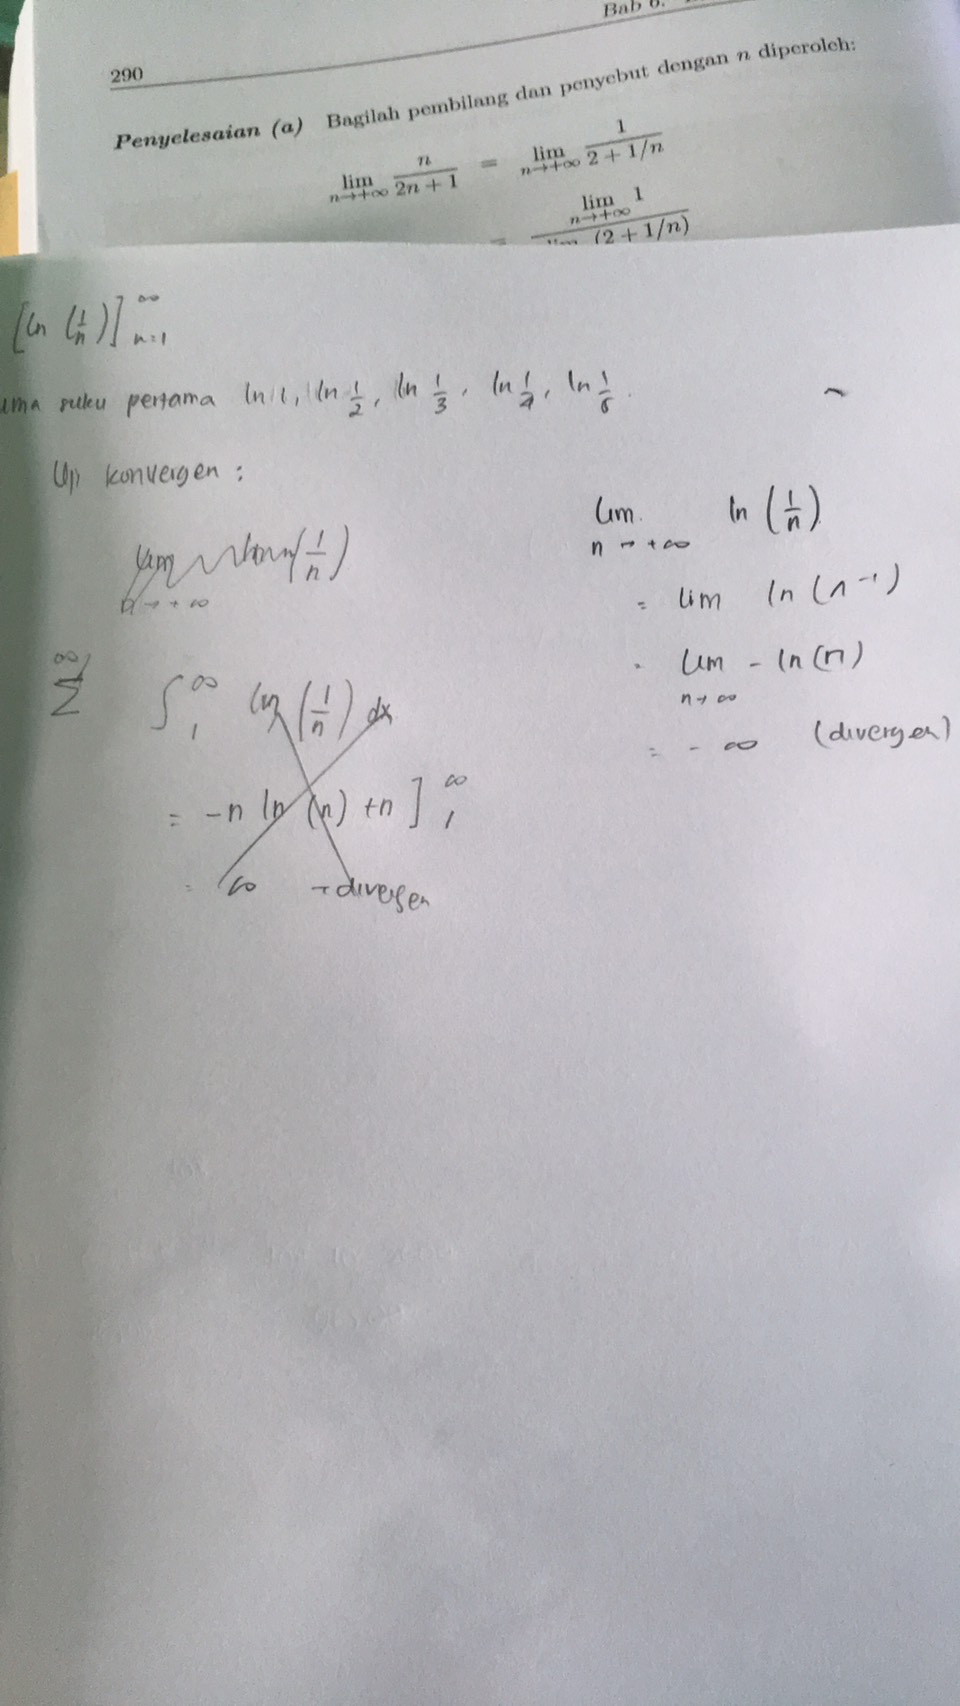 Bab 6.
290
Penyelesaian (a) Bagilah pembilang dan penyebut dengan n diperoleh:
lim n→+∞ n/(2n + 1) = lim n→+∞ 1/(2 + 1/n)
= lim n→+∞ 1 / (2 + 1/n)
[ln (1/n)] ∞ n=1
ima suku pertama ln 1, ln 1/2, ln 1/3, ln 1/4, ln 1/5.
Uji konvergen :
lim n→+∞ (1/n)
∞ Σ ∫ 1 ∞ ln (1/n) dx
= -n ln (n) + n ] ∞ 1
= ∞ → divergen
lim n→+∞ ln (1/n)
= lim ln (n⁻¹)
= lim n→∞ - ln (n)
= - ∞ (divergen)